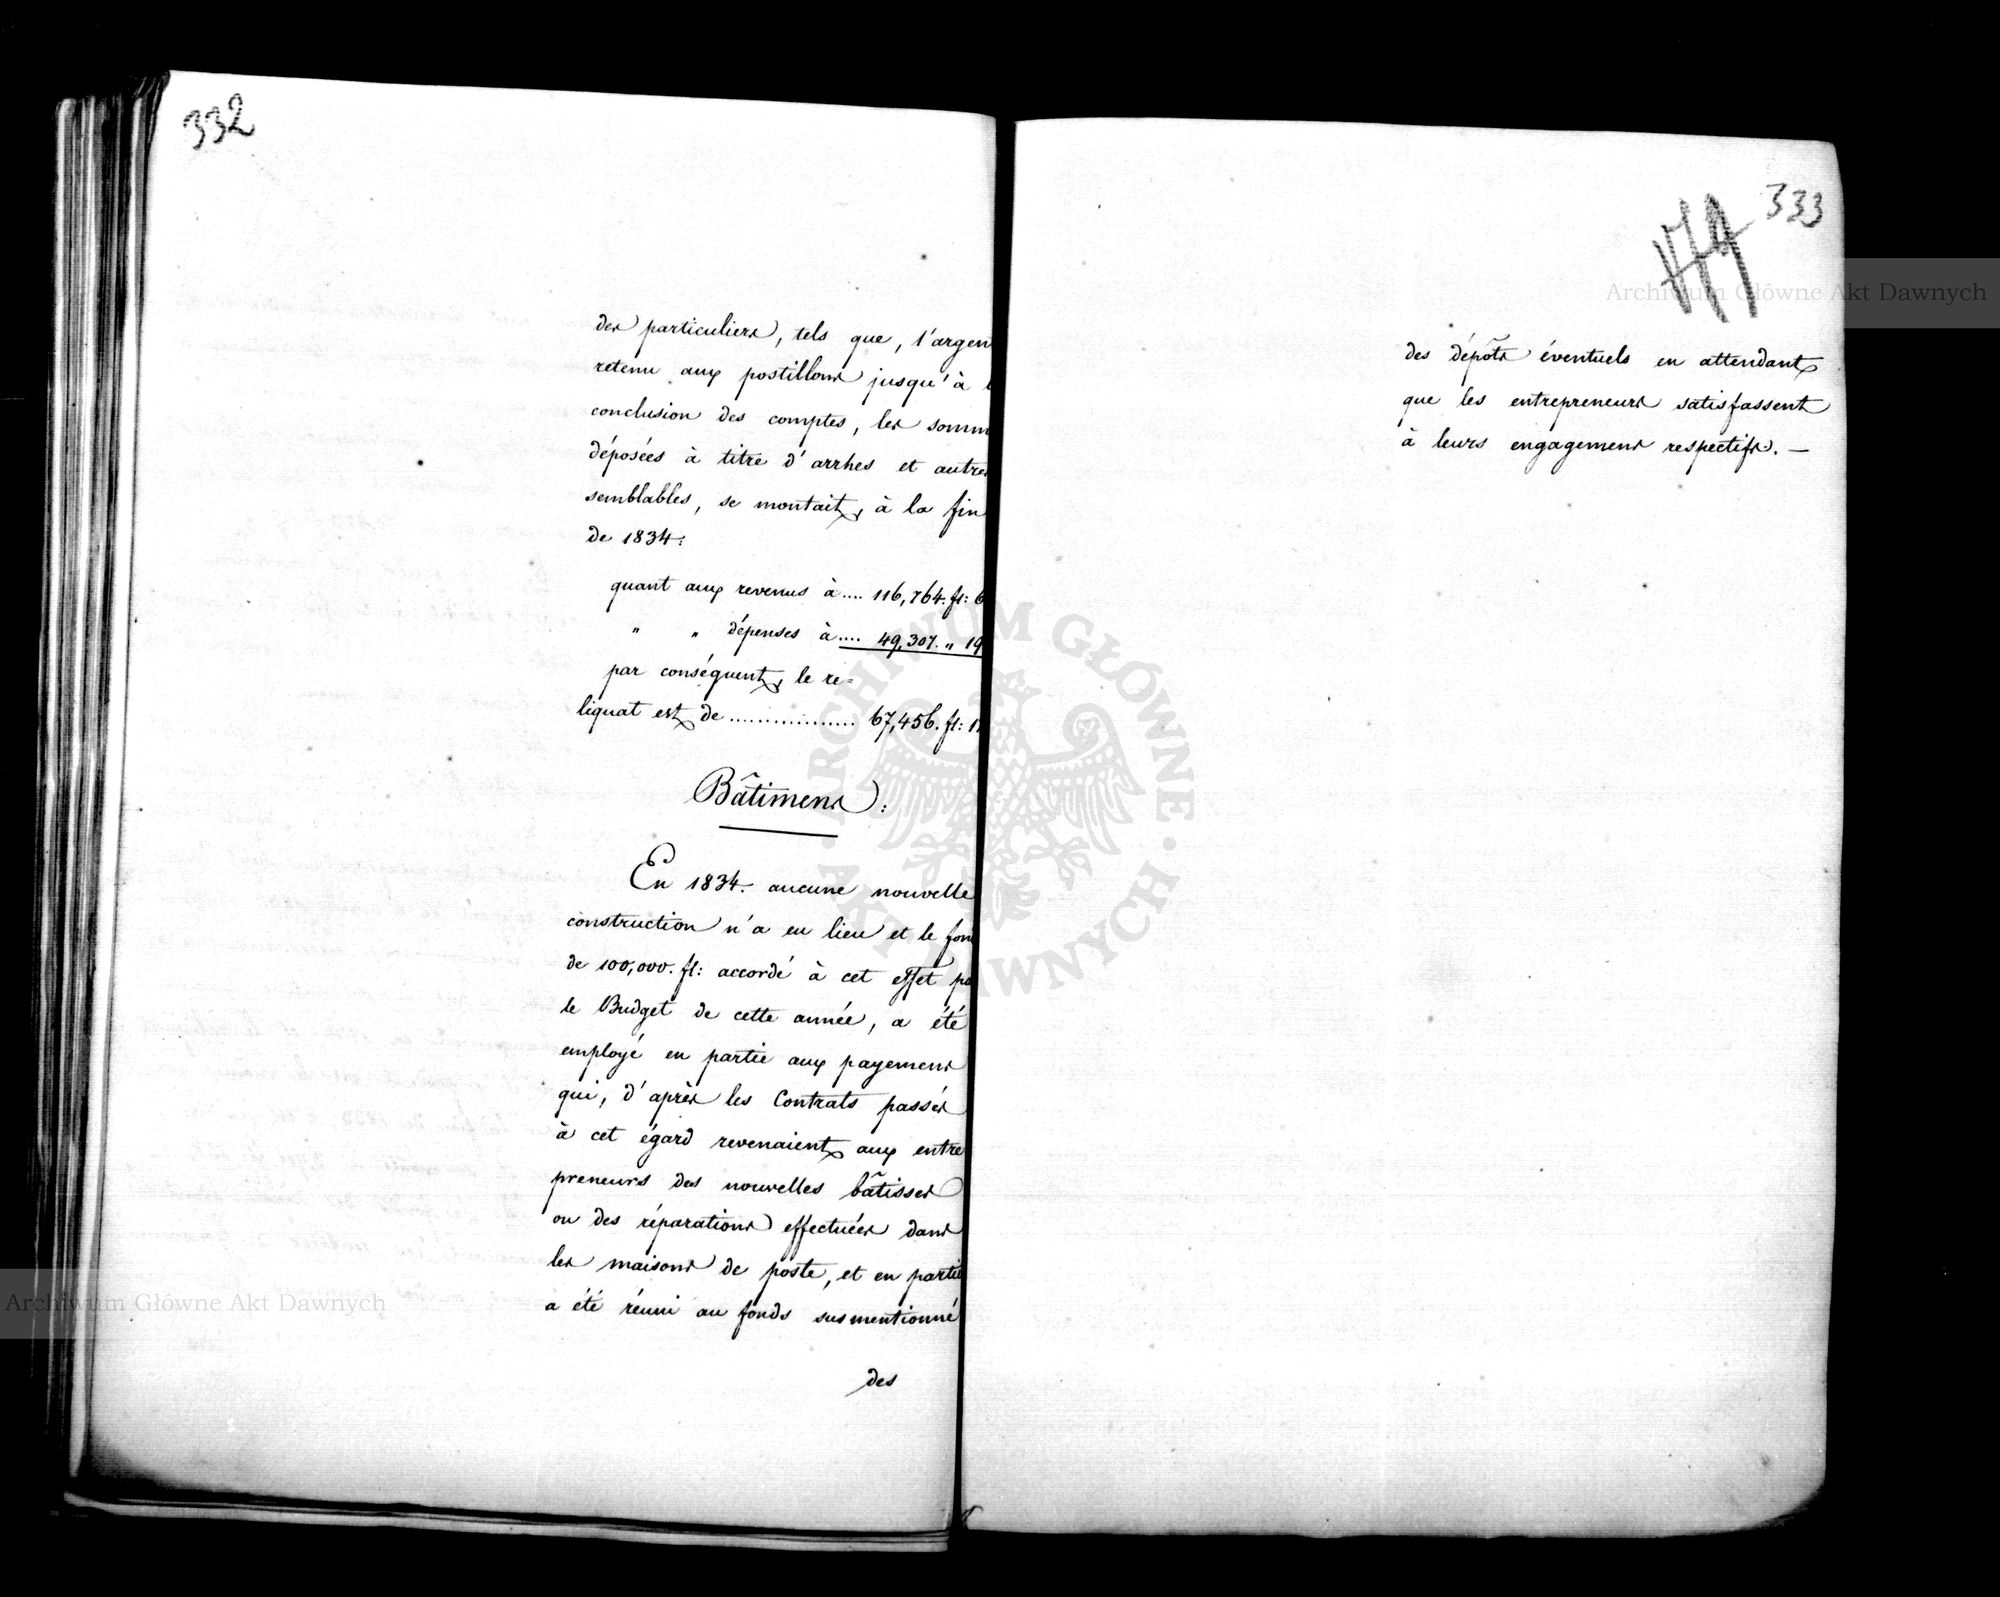 332
des particuliers, tels que, l'argen
retenu aux postillons jusqu'à
conclusion des comptes, les somm
déposées à titre d'arrhes et autres
semblables, se montait, à la fin
de 1834:
quant aux revenus à .... 116,764. fl: 6
" " dépenses à .... 49,307. " 19
par conséquent, le re=
liquat est de ................. 67,456. fl: 1
Bâtimens:
En 1834. aucune nouvelle
construction n'a eu lieu et le fon
de 100,000. fl: accordé à cet effet pa
le Budget de cette année, a été
employé en partie aux payemens
qui, d'après les Contrats passés
à cet égard revenaient aux entre
preneurs des nouvelles bâtisses
ou des réparations effectuées dans
les maisons de poste, et en partie
a été réuni au fonds susmentionné
des
333
des dépôts éventuels en attendant
que les entrepreneurs satisfassent
à leurs engagemens respectifs. —
Archiwum Główne Akt Dawnych
Archiwum Główne Akt Dawnych
ARCHIWUM GŁÓWNE AKT DAWNYCH